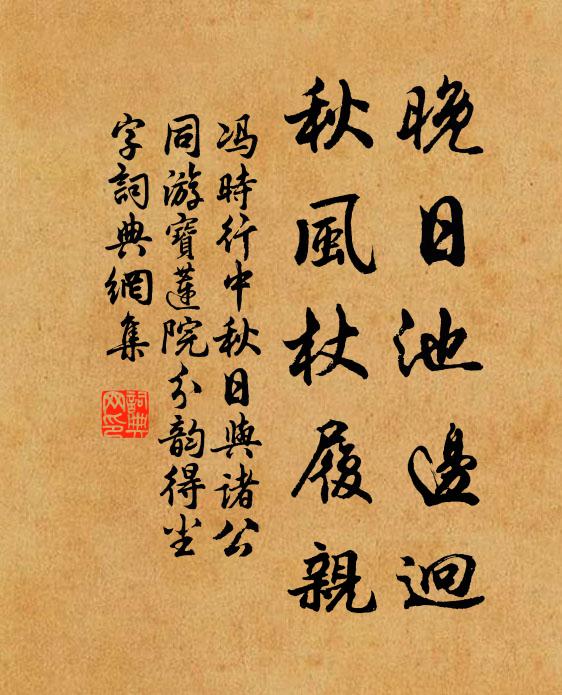 晚日池邊迥
秋風杖履親
冯時行中秋日與诸公
同游寶蓮院分韵得坐
字詞典網集
詞典网印